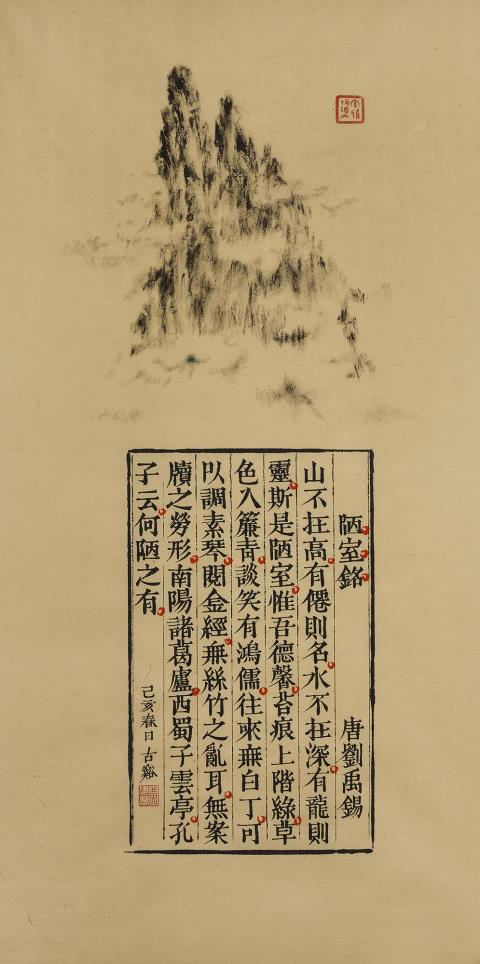 陋室銘 唐劉禹錫
山不在高有僊則名水不在深有龍則
靈斯是陋室惟吾德馨苔痕上階綠草
色入簾青談笑有鴻儒往來無白丁可
以調素琴閱金經無絲竹之亂耳無案
牘之勞形南陽諸葛廬西蜀子雲亭孔
子云何陋之有
己亥春日古谿